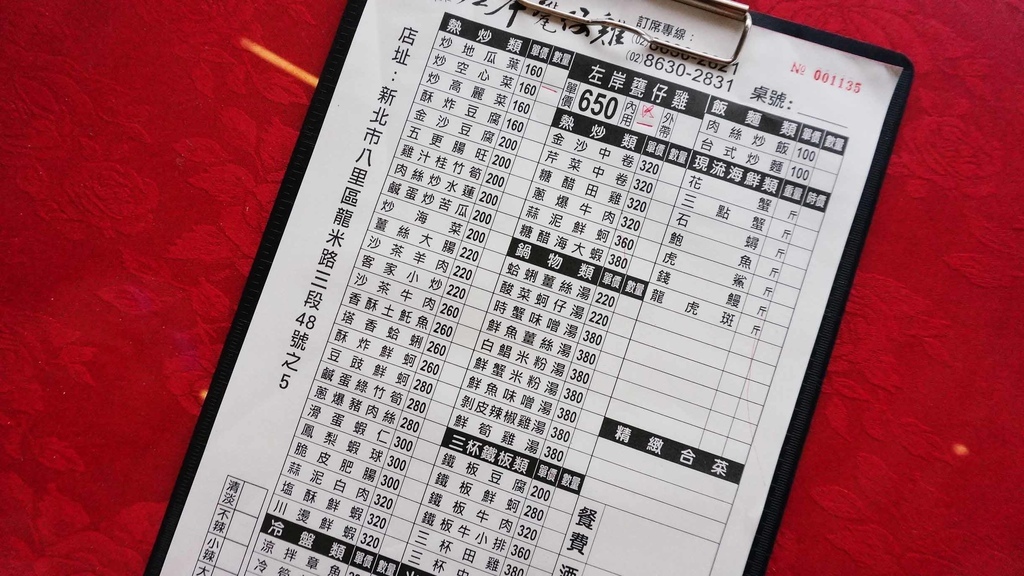 甕仔雞
訂席專線：
(02)8630-2831
№ 001135
桌號：
店址：新北市八里區龍米路三段48號之5
熱炒類 單價 數量
炒地瓜葉 160
炒空心菜 160
炒高麗菜 160
酥炸豆腐 160
金沙豆腐 200
五更腸旺 200
雞汁桂竹筍 200
肉絲炒水蓮 200
鹹蛋炒苦瓜 200
炒海菜 200
薑絲大腸 220
沙茶羊肉 220
客家小炒 220
沙茶牛肉 220
香酥土魠魚 260
塔香蛤蜊 260
酥炸鮮蚵 260
豆豉鮮蚵 260
鹹蛋綠竹筍 280
蔥爆豬肉絲 280
滑蛋蝦仁 280
鳳梨蝦球 300
脆皮肥腸 300
蒜泥白肉 300
塩酥鮮蝦 320
川燙鮮蝦 320
冷盤類 單價 數量
涼拌草
左岸甕仔雞
單價 650 內用 外帶
熱炒類 單價 數量
金沙中卷 320
芹菜中卷 320
糖醋田雞 320
蔥爆牛肉 320
蒜泥鮮蚵 360
糖醋海大蝦 380
鍋物類 單價 數量
蛤蜊薑絲湯 220
酸菜蚵仔湯 220
時蟹味噌湯 380
鮮魚薑絲湯 380
白鯧米粉湯 380
鮮蟹米粉湯 380
鮮魚味噌湯 380
剝皮辣椒雞湯 380
鮮筍雞湯 380
三杯鐵板類 單價 數量
鐵板豆腐 200
鐵板鮮蚵 280
鐵板牛肉 320
鐵板牛小排 360
三杯田雞 380
三杯中
飯麵類 單價 數量
肉絲炒飯 100
台式炒麵 100
現流海鮮類 重量 時價
花蟹 斤
三點蟹 斤
石蟳 斤
鮑魚
虎鯊 斤
錢鰻 斤
龍虎斑 斤
精緻合菜
餐費
酒
清淡
不辣
小辣
大